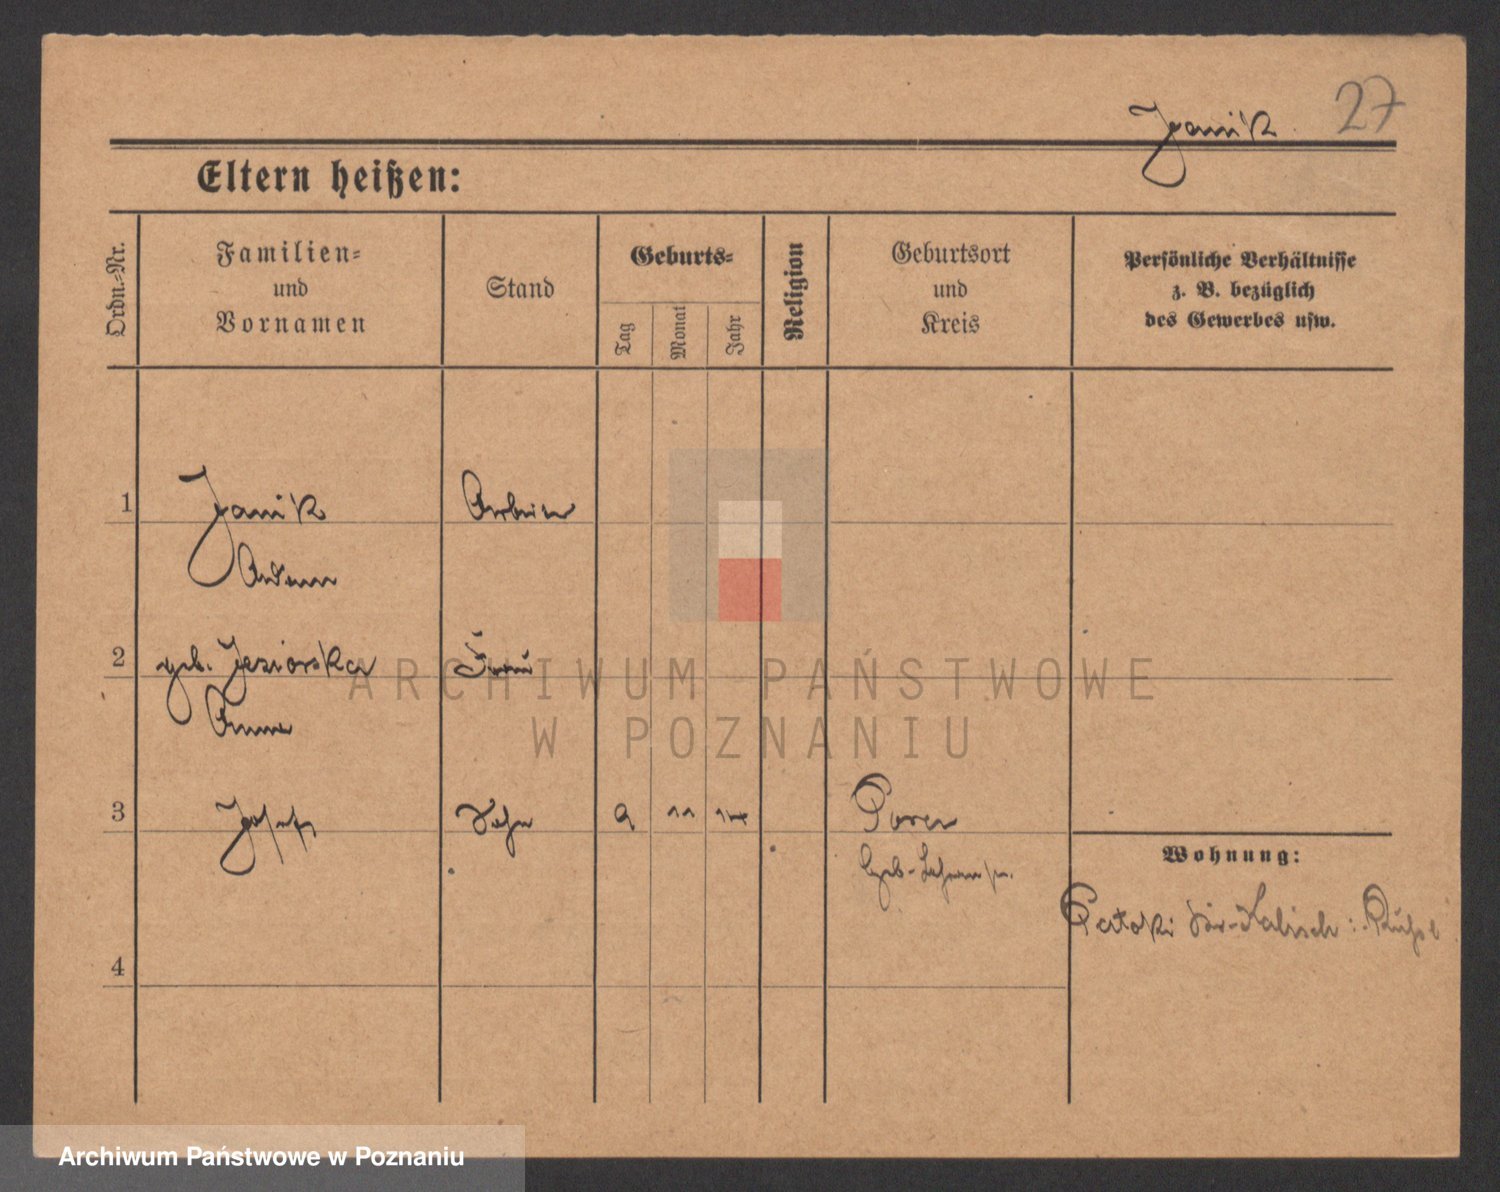 27
Janik
Eltern heißen:
Ordn.-Nr.
Familien-
und
Vornamen
Stand
Geburts-
Tag
Monat
Jahr
Religion
Geburtsort
und
Kreis
Persönliche Verhältnisse
z. B. bezüglich
des Gewerbes usw.
1
Janik
Arbeiter
Adam
2
geb. Jeziorska
Frau
Anna
3
Josef
Sohn
9
11
14
Wohnung:
4
ARCHIWUM PAŃSTWOWE
W POZNANIU
Archiwum Państwowe w Poznaniu